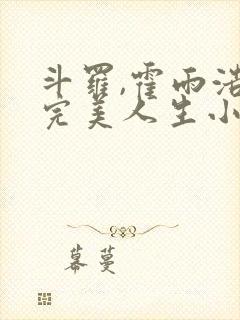 斗罗,霍雨浩
完美人生小
幕蔓